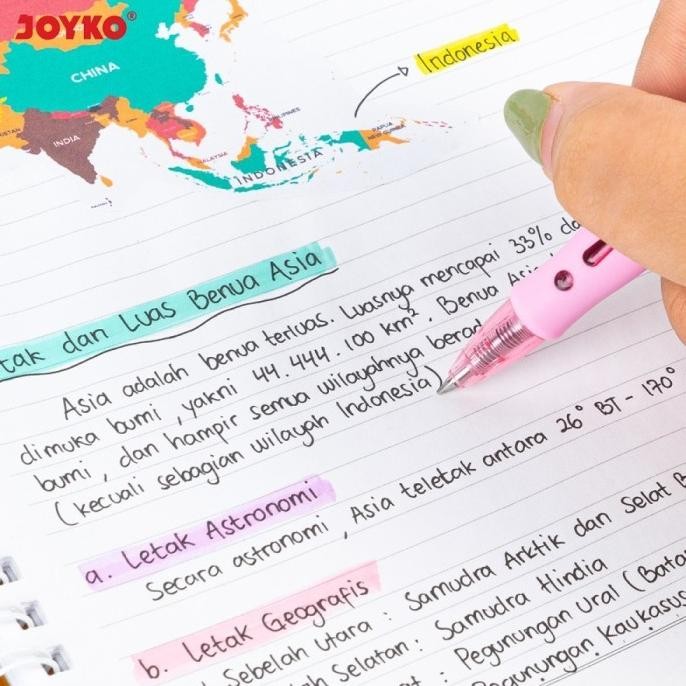 JOYKO®
CHINA
INDIA
MALAYSIA
INDONESIA
PAPUA
NEW GUINEA
Indonesia
tak dan Luas Benua Asia
Asia adalah benua terluas. Luasnya mencapai 33% da
dimuka bumi, yakni 44.444.100 km². Benua Asi
bumi, dan hampir semua wilayahnya berad
(kecuali sebagian wilayah Indonesia)
a. Letak Astronomi
Secara astronomi, Asia teletak antara 26° BT - 170°
b. Letak Geografis
Sebelah Utara : Samudra Arktik dan Selat B
lah Selatan : Samudra Hindia
t : Pegunungan Ural (Bata
Pegunungan Kaukasus